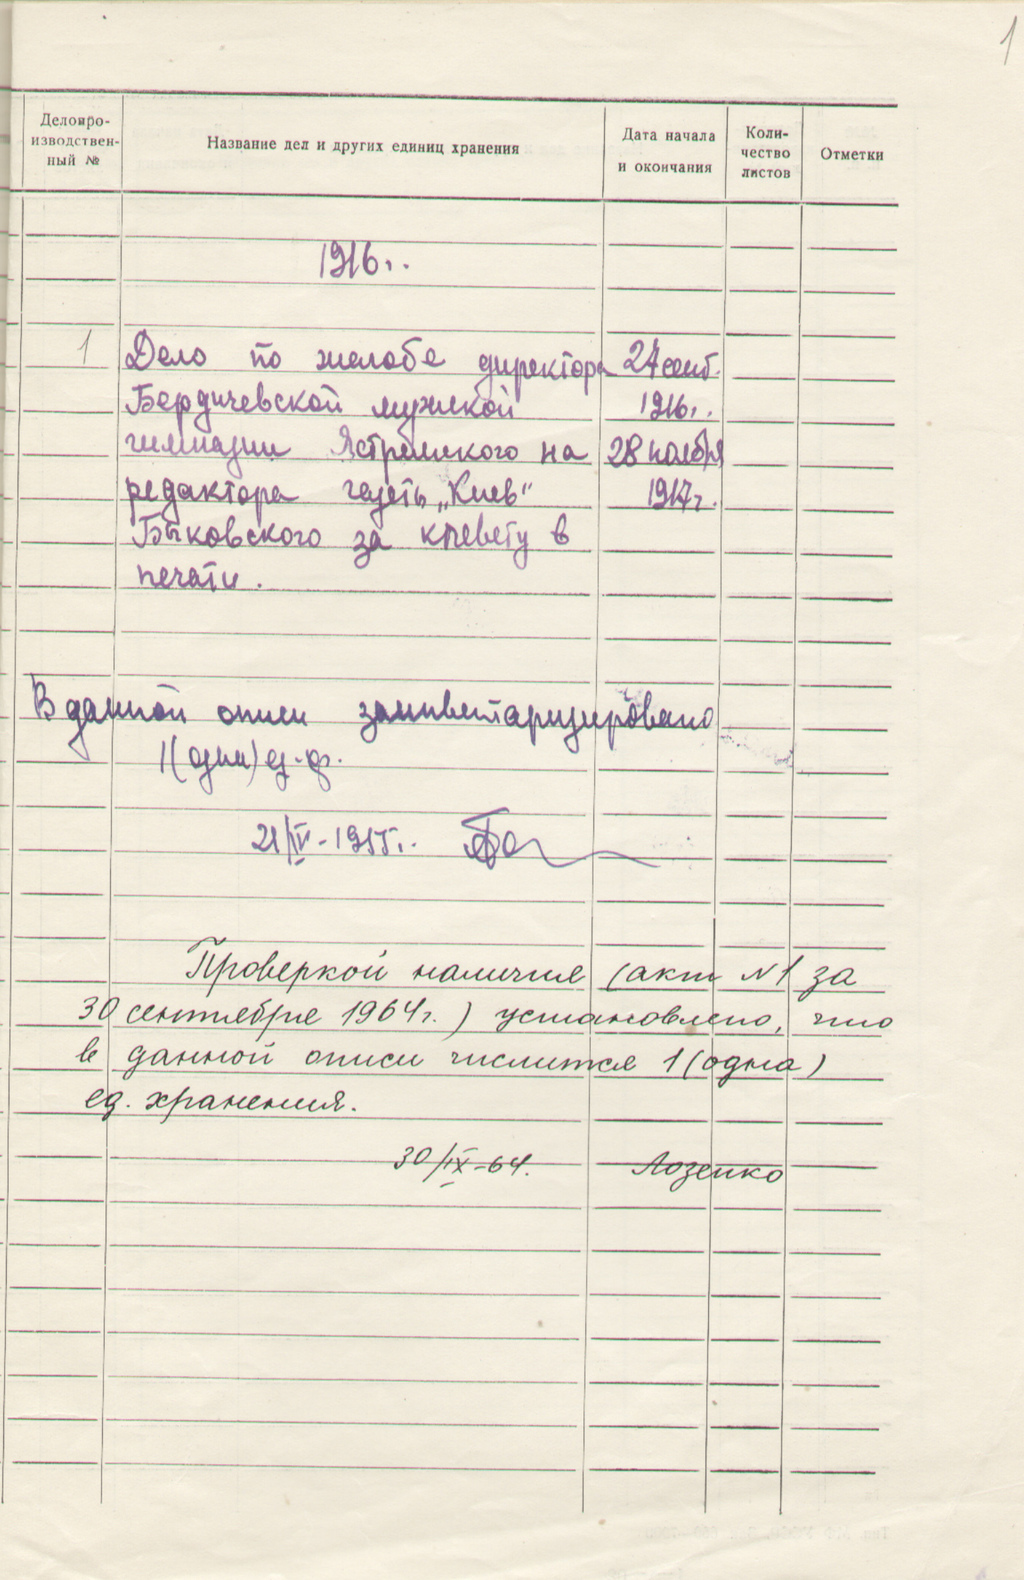 1
Деловро-
изводствен-
ный №
Название дел и других единиц хранения
Дата начала
и окончания
Коли-
чество
листов
Отметки
1916 г.
1 Дело по жалобе директора 24 сент.
Бердичевской мужской 1916 г.
гимназии Ястремского на 28 ноября
редактора газеты „Киев“ 1917 г.
Быковского за клевету в
печати.
В данной описи заинвентаризировано
1 (одна) ед. хр.
21/IV-1955 г.
Проверкой наличия (акт №1 за
30 сентября 1964 г.) установлено, что
в данной описи числится 1 (одна)
ед. хранения.
30/IX-64. Лозенко